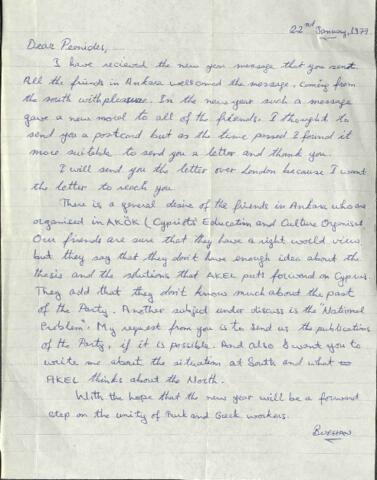 22nd January, 1979
Dear Peonides,
I have recieved the new year message that you sent.
All the friends in Ankara wellcomed the message, coming from
the south with pleasure. In the new year such a message
gave a new moral to all of the friends. I thought to
send you a postcard but as the time passed I found it
more suitable to send you a letter and thank you.
I will send you the letter over London because I want
the letter to reach you.
There is a general desire of the friends in Ankara who are
organised in AKÖK (Cypriots Education and Culture Organisat
Our friends are sure that they have a right world view
but they say that they don't have enough idea about the
thesis and the solutions that AKEL puts forward on Cyprus.
They add that they don't know much about the past
of the Party. Another subject under discuss is the "National
Problem". My request from you is to send us the publications
of the Party, if it is possible. And also I want you to
write me about the situation at South and what
AKEL thinks about the North.
With the hope that the new year will be a forward
step on the unity of Turk and Greek workers.
BURHAN